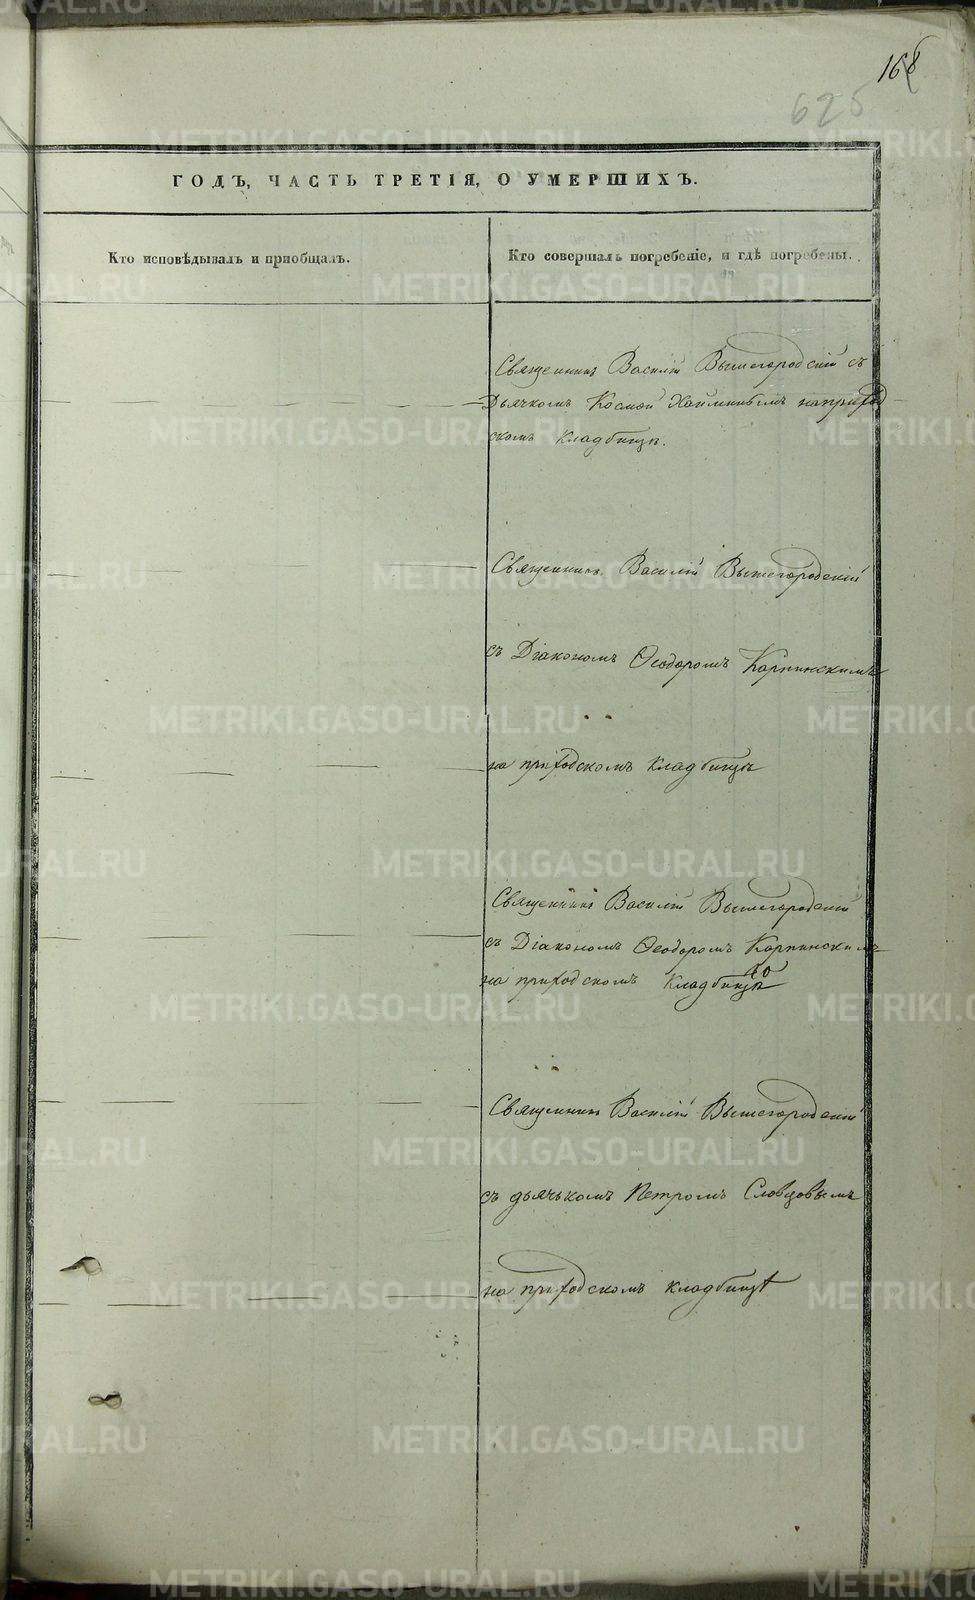 168
625
ГОДЪ, ЧАСТЬ ТРЕТІЯ, О УМЕРШИХЪ.
Кто исповѣдывалъ и пріобщалъ.
Кто совершалъ погребеніе, и гдѣ погребены.
Священникъ Василій Вышегородскій съ
Дьячкомъ Космой на приход
скомъ кладбищѣ.
Священникъ Василій Вышегородскій
съ Діакономъ Ѳеодоромъ Карпинскимъ
на приходскомъ кладбищѣ
Священникъ Василій Вышегородскій
съ Діакономъ Ѳеодоромъ Карпинскимъ
на приходскомъ кладбищѣ
Священникъ Василій Вышегородскій
съ дьячькомъ Петромъ Словцовымъ
на приходскомъ кладбищѣ
METRIKI.GASO-URAL.RU